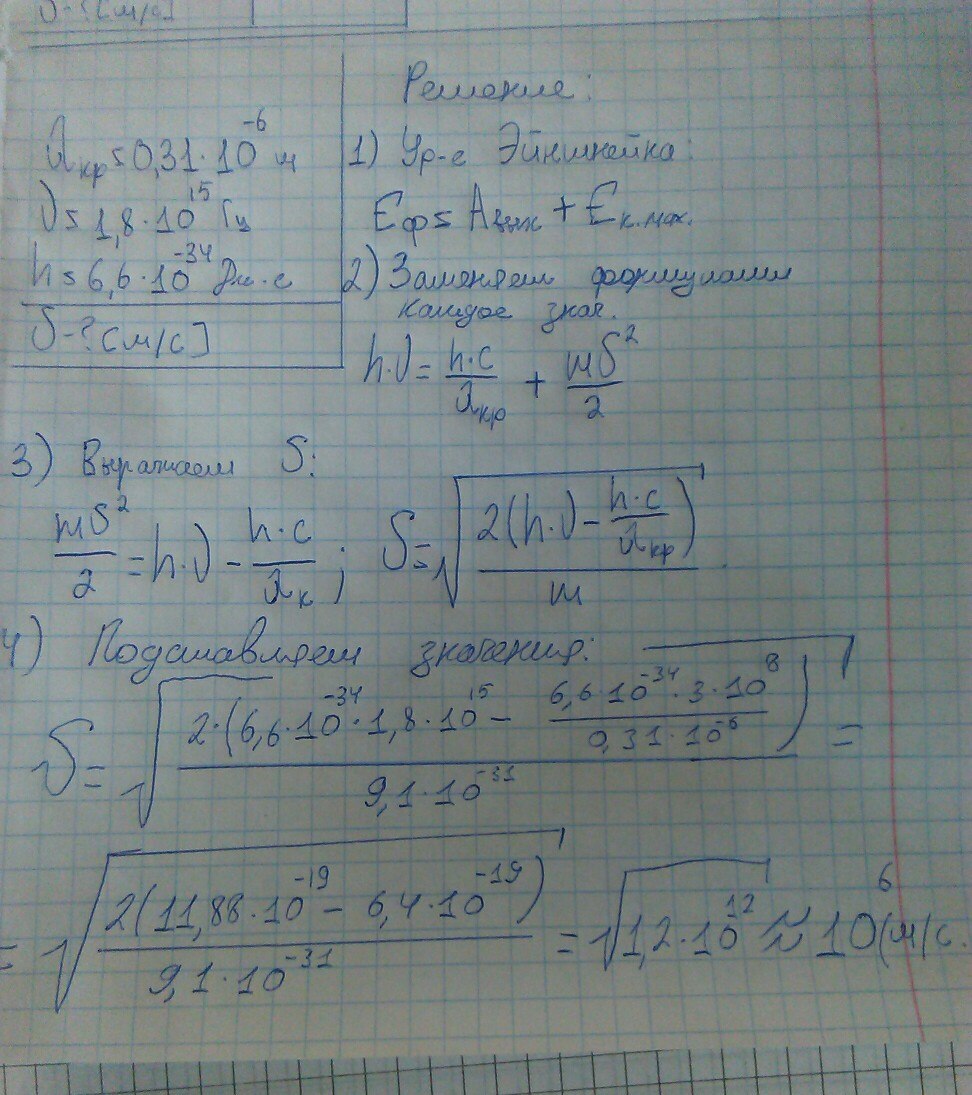 υ-?[м/с]
Решение:
λкр=0,31·10^-6 м
ν=1,8·10^15 Гц
h=6,6·10^-34 Дж·с
υ-?[м/с]
1) Ур-е Эйнштейна:
Eф=Aвых+Eк.max.
2) Заменяем формулами
каждое знач.
h·ν=h·c/λкр+mυ^2/2
3) Выражаем υ:
mυ^2/2=h·ν-h·c/λк; υ=√(2(h·ν-h·c/λкр)/m)
4) Подставляем значения:
υ=√(2·(6,6·10^-34·1,8·10^15-6,6·10^-34·3·10^8/0,31·10^-6)/9,1·10^-31)=
=√(2(11,88·10^-19-6,4·10^-19)/9,1·10^-31)=√1,2·10^12≈10^6(м/с.